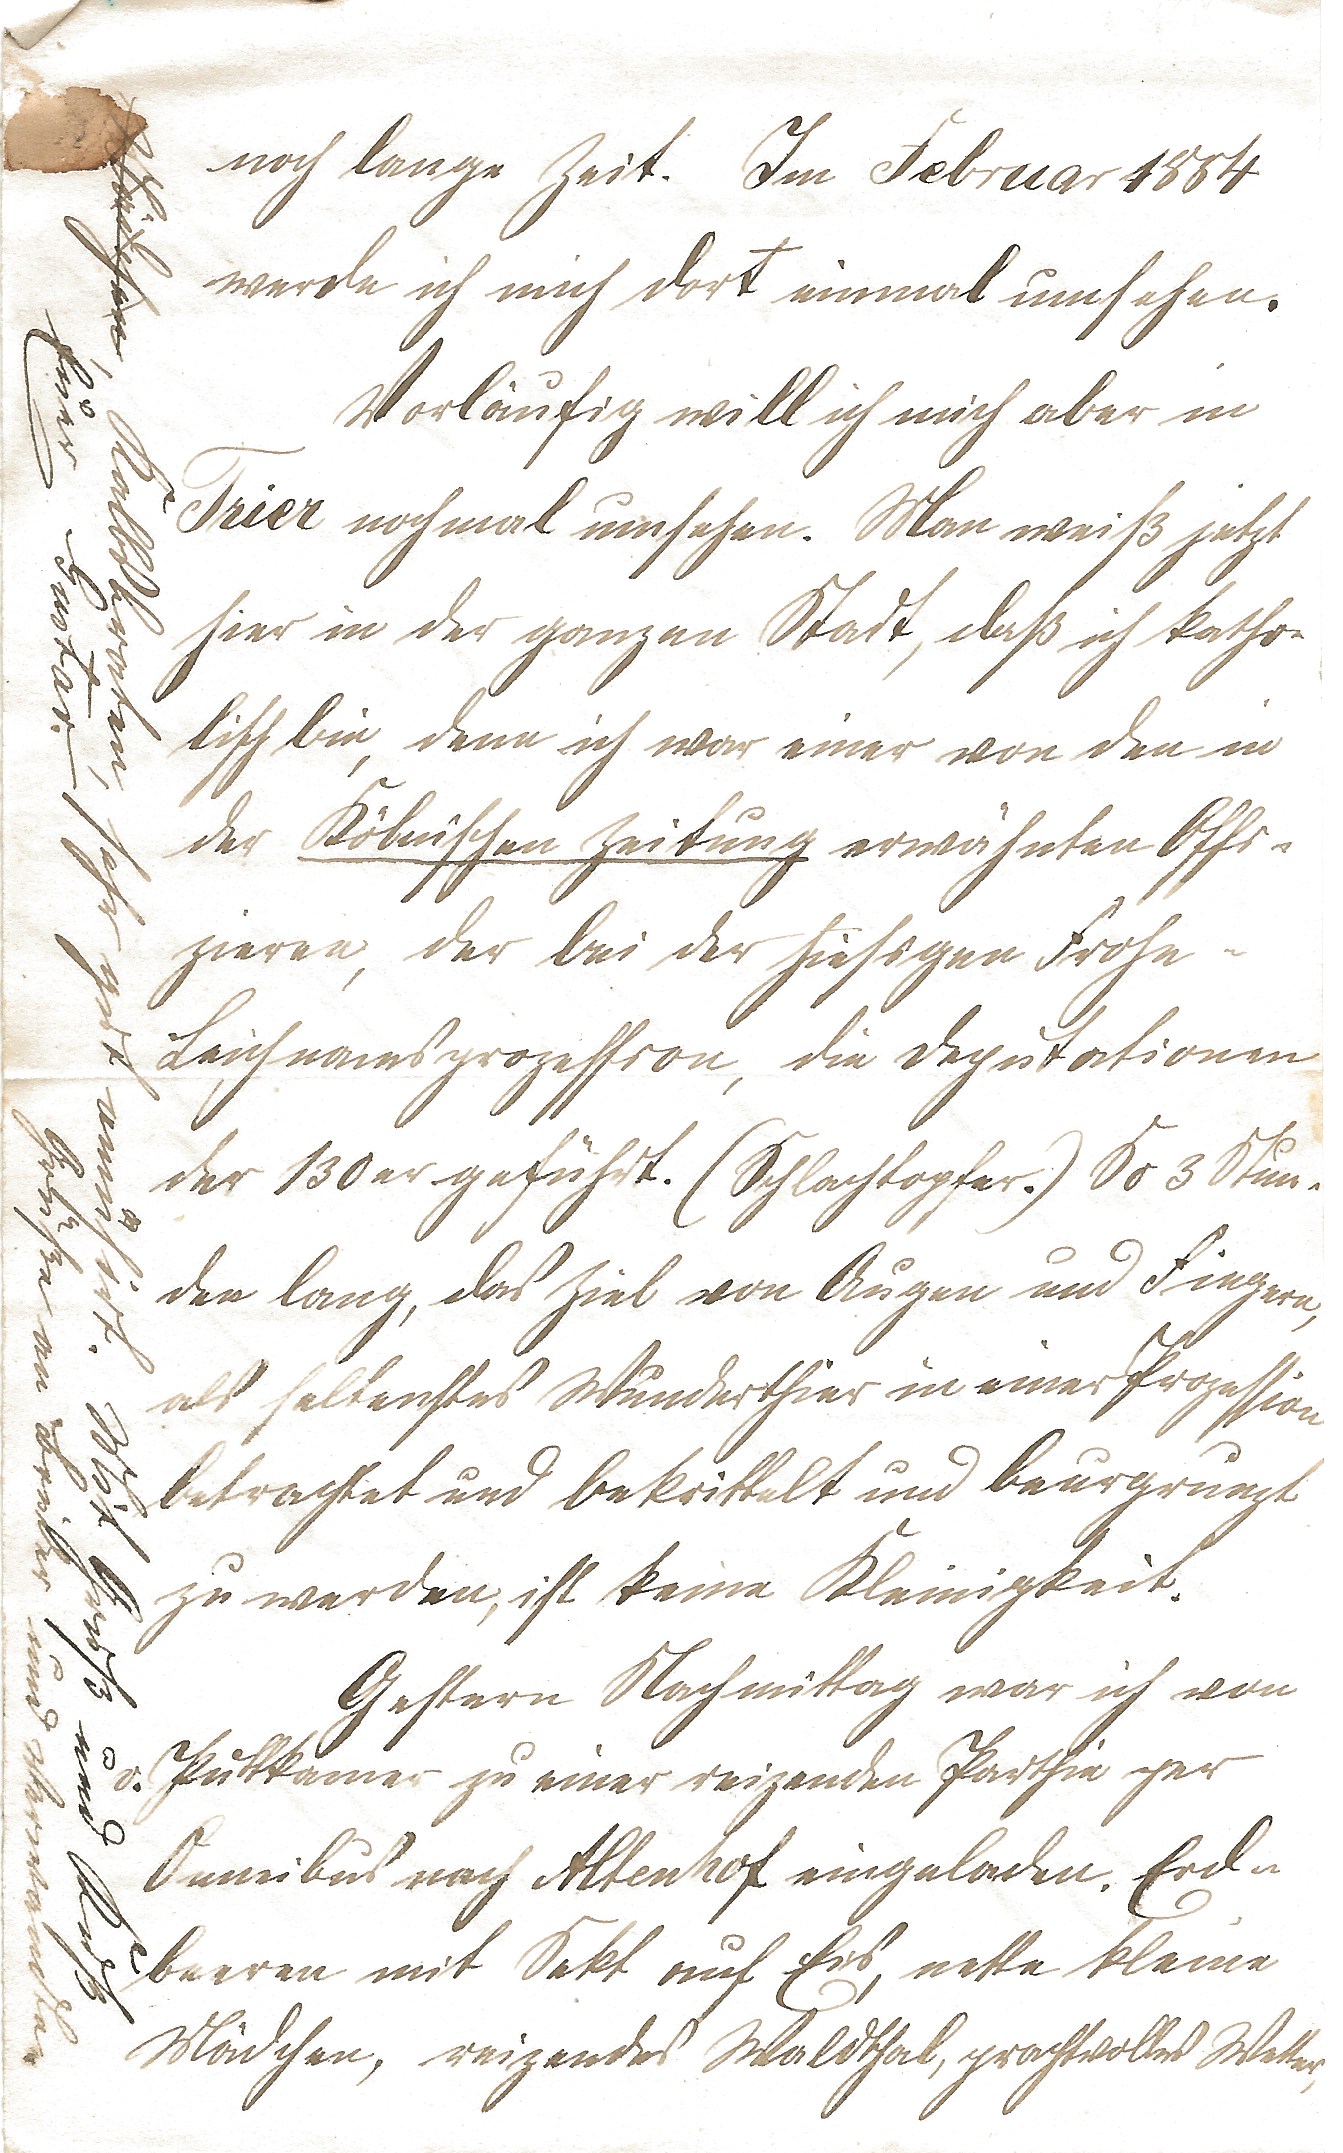 noch lange Zeit. Im Februar 1884
werde ich mich dort einmal umsehen.
Vorläufig will ich mich aber in
Trier nochmal umsehen. Man weiß jetzt
hier in der ganzen Stadt, daß ich katho-
lisch bin, denn ich war einer von den in
der Kölnischen Zeitung erwähnten Offi-
zieren, der bei der hiesigen Frohn-
Leichnamsprozession, die Deputationen
der 130er geführt. (Schlachtopfer.) So 3 Stun-
den lang, das Ziel von Augen und Fingern,
als seltenstes Wunderthier in einer Prozession
betrachtet und bekrittelt und beurgrunzt
zu werden, ist keine Kleinigkeit.
Gestern Nachmittag war ich von
v. Puttkamer zu einer reizenden Parthie per
Omnibus nach Altenhof eingeladen. Erd-
beeren mit Sekt auf Eis, nette kleine
Mädchen, reizendes Waldthal, prachtvolles Wetter,
Kalbsbraten, sehr gut amüsirt. Mit Gruß und Kuß
Euer Gustav.
Grüße an Brüder und Verwandten